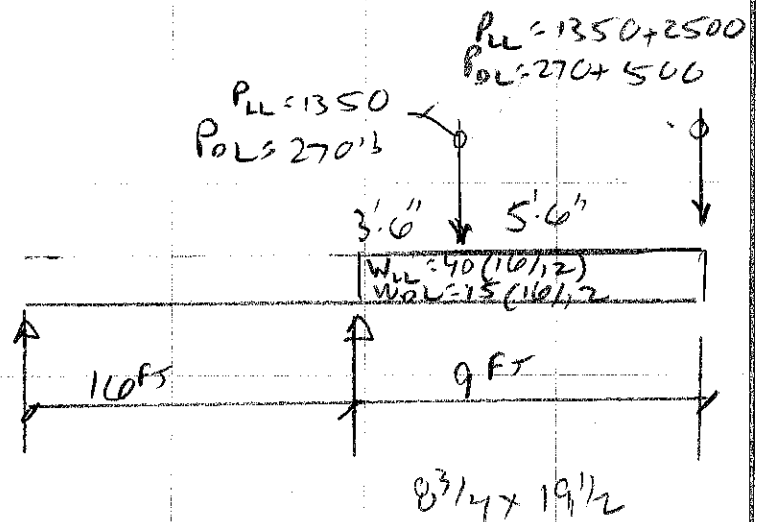 P_LL = 1350 + 2500
P_DL = 270 + 500
P_LL = 1350
P_DL = 270 lb
3'-6" 5'-6"
W_LL = 40 (16/12)
W_DL = 15 (16/12
16 FT 9 FT
8 3/4 x 19 1/2